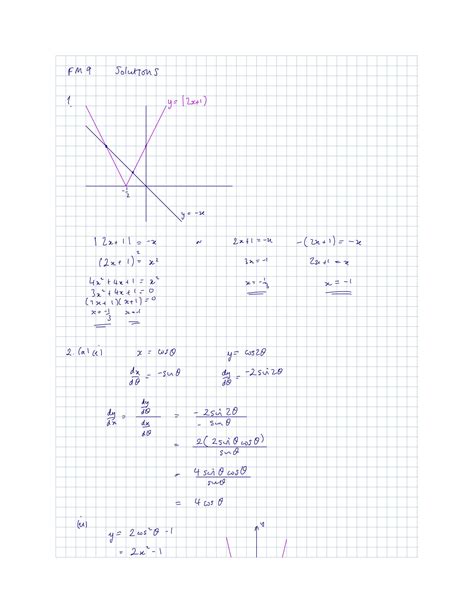 FM9 Solutions
1.
y = |2x+1|
-1/2
y = -x
|2x+1| = -x or 2x+1 = -x -(2x+1) = -x
(2x+1)² = x² 3x = -1 2x+1 = x
4x² + 4x + 1 = x² x = -1/3 x = -1
3x² + 4x + 1 = 0
(3x+1)(x+1) = 0
x = -1/3 x = -1
2. (a) (i) x = cosθ y = cos2θ
dx/dθ = -sinθ dy/dθ = -2sin2θ
dy/dx = (dy/dθ)/(dx/dθ) = -2sin2θ/-sinθ
= 2(2sinθcosθ)/sinθ
= 4sinθcosθ/sinθ
= 4cosθ
(ii) y = 2cos²θ - 1
= 2x² - 1
y